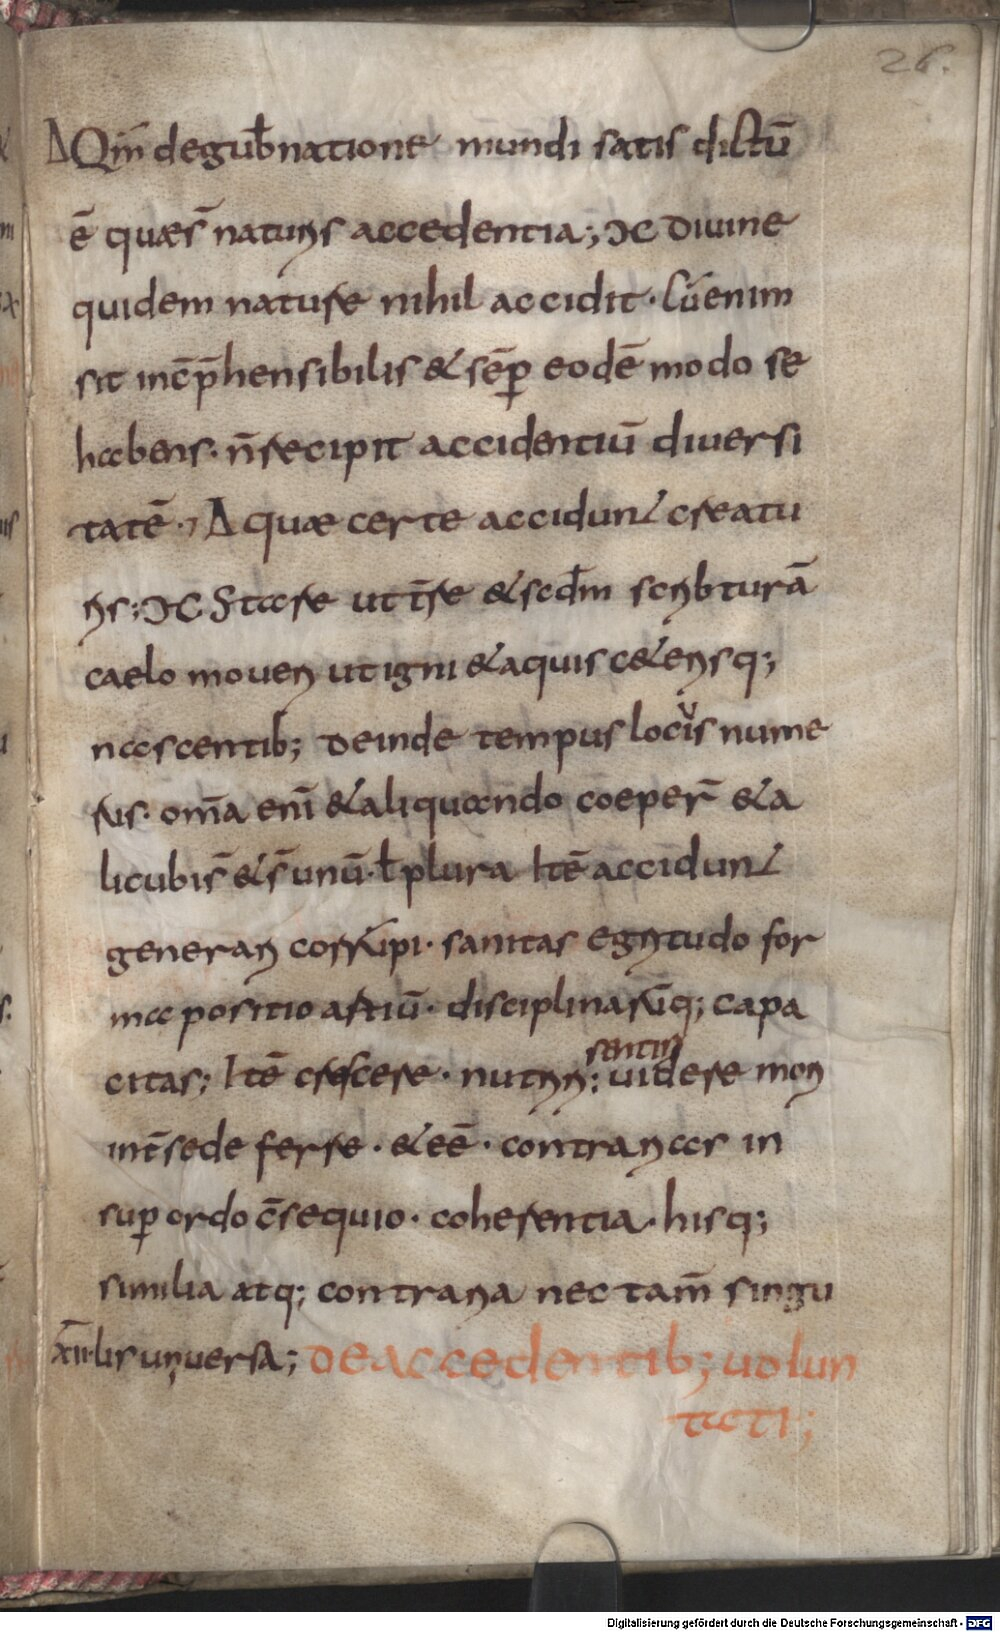 26.
Δ Qm̄ degub̄natione mundi satis dictū
ē quaes̄ naturis accedentia; Ⲙc Divine
quidem nature nihil accidit · Cū enim
sit inc̄p̄hensibilis & sēp eodē modo se
habens · n̄ recipit accidentiū diversi
tatē · Δ quae certe accidunt creatu
ris; Stare ut t̄re & scdm̄ scribturā
caelo moveri ut igni & aquis c&erisq;
nascentib; Deinde tempus locis nume
v
rus · om̄a enī & aliquando coeper̄ & a
licubi s̄ & s̄ unū · ł plura Itē accidunt
generari corrupi · sanitas egritudo for
ma positio artiū · disciplinarūq; capa
sentiri
citas; Itē crescere · nutriri; videre mori
int̄ sede ferre · & eē · contrarias in
sup ordo c̄sequio · coherentia · hisq;
similia atq; contraria nec tam̄ singu
xii · lis universa; De accedentib; volun
tati;
Digitalisierung gefördert durch die Deutsche Forschungsgemeinschaft - DFG